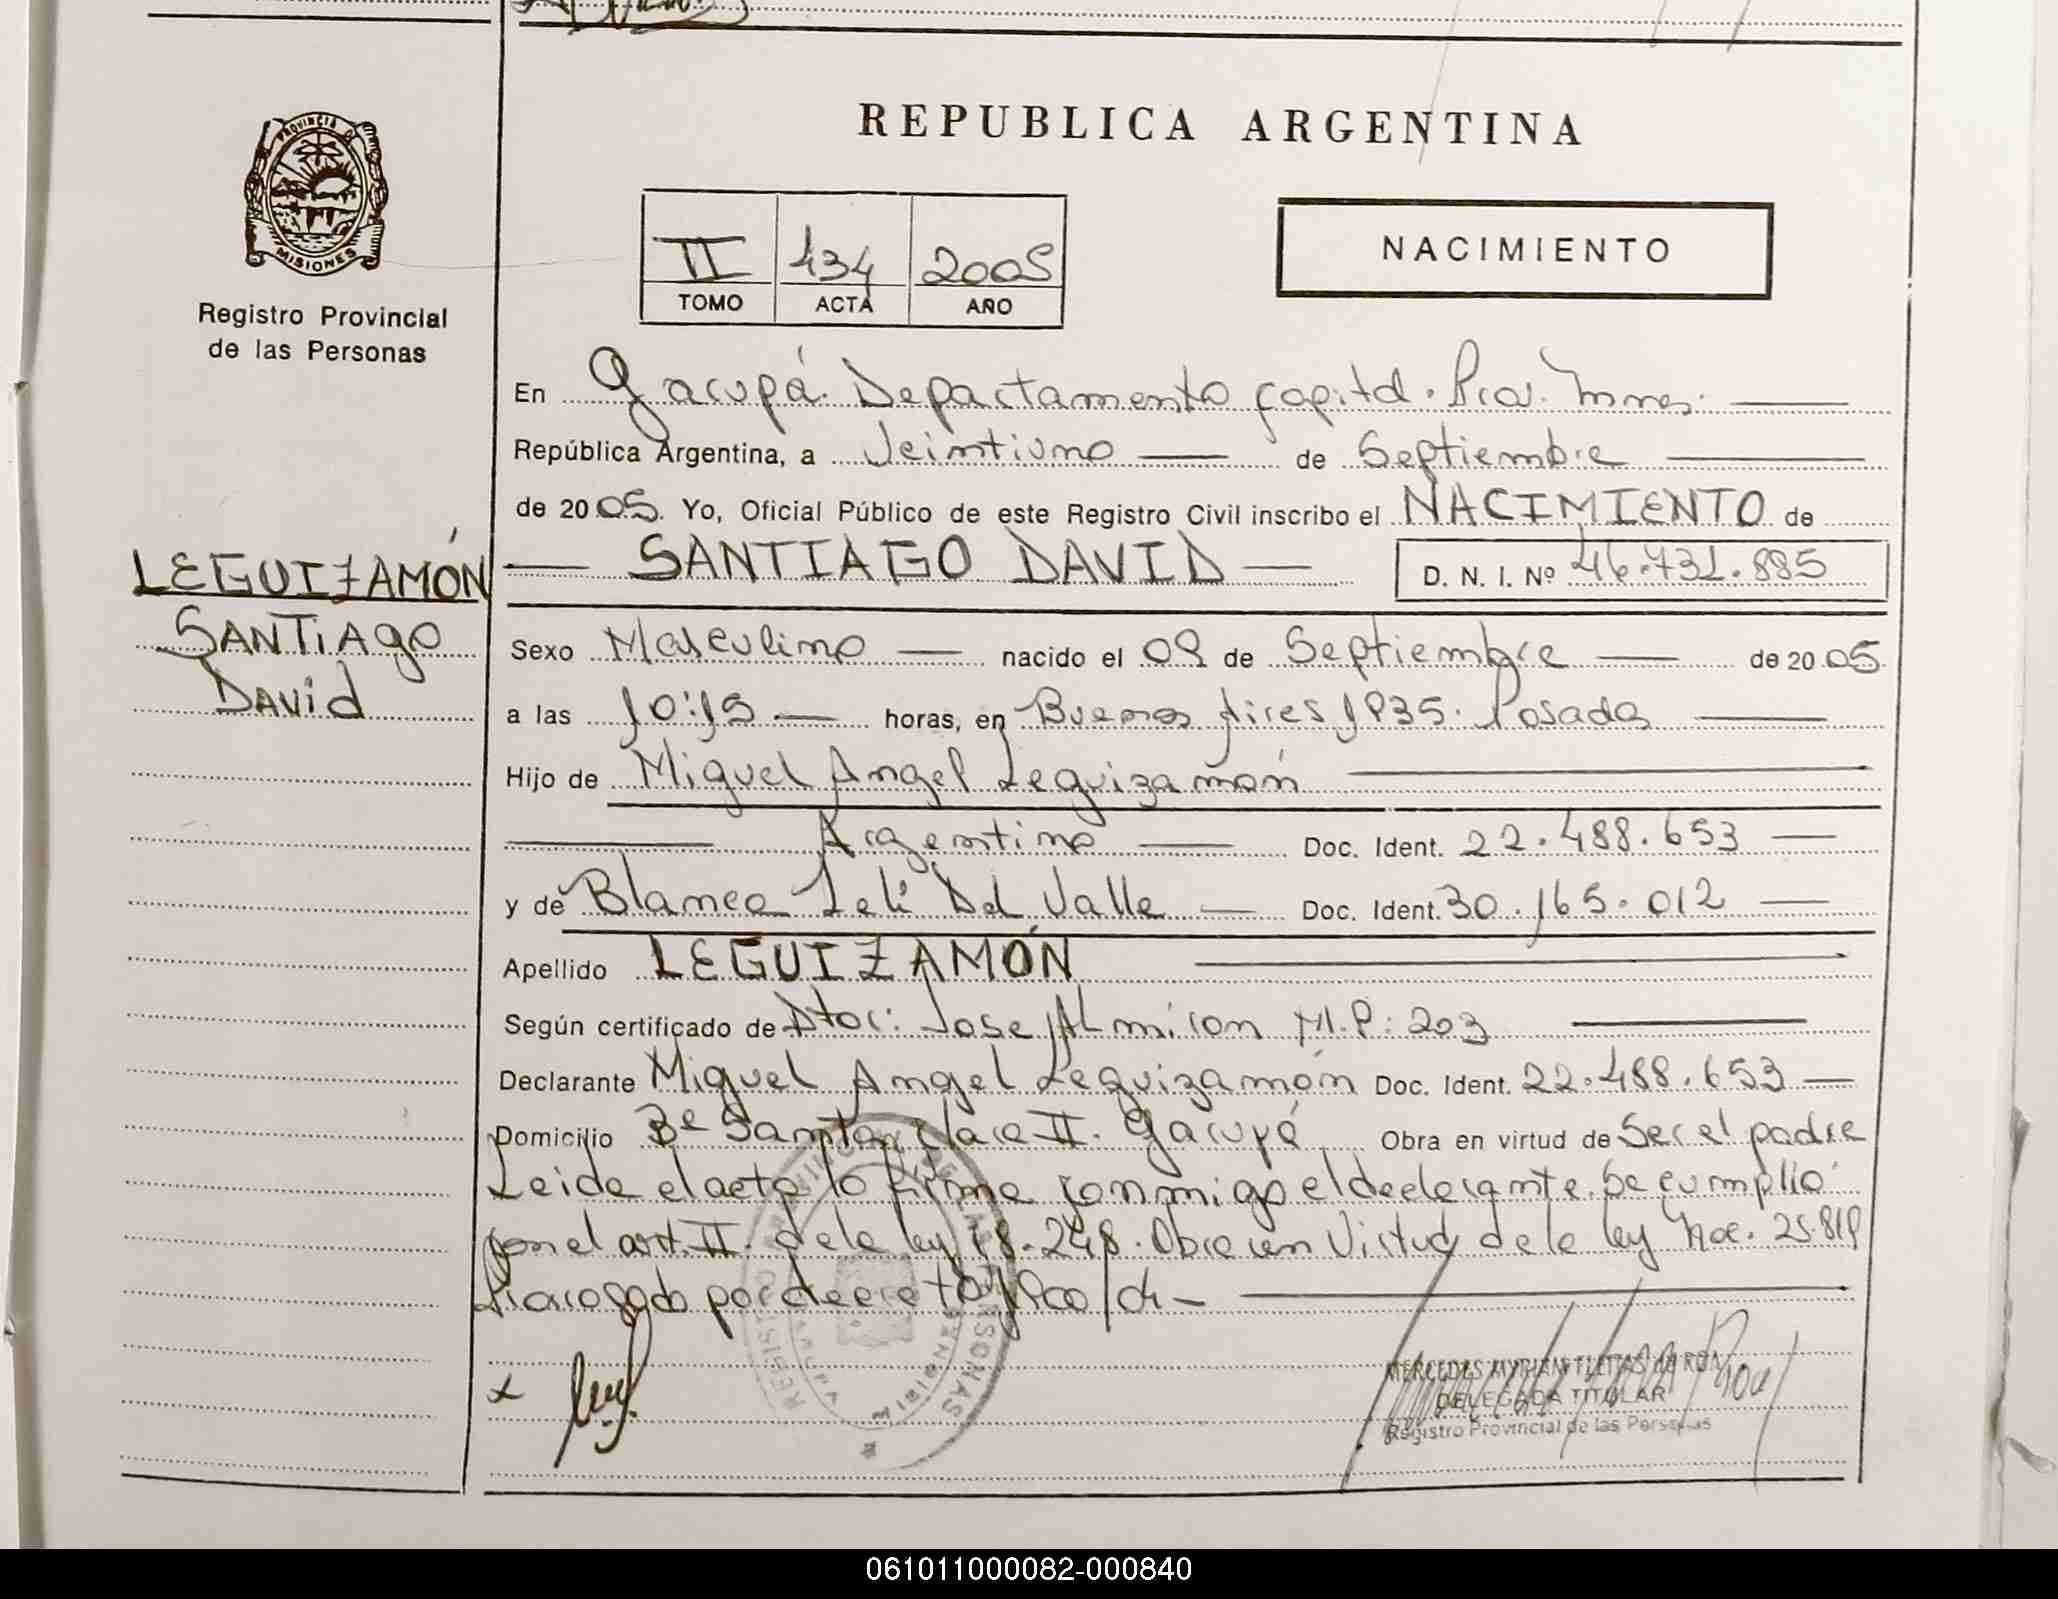 REPUBLICA ARGENTINA
PROVINCIA D MISIONES
Registro Provincial
de las Personas
II 434 2005
TOMO ACTA AÑO
NACIMIENTO
En Garupá. Departamento Capital. Prov. Mnes.
República Argentina, a Veintiuno de Septiembre
de 2005. Yo, Oficial Público de este Registro Civil inscribo el NACIMIENTO de
SANTIAGO DAVID D. N. I. Nº 46.731.885
LEGUIZAMÓN
SANTIAGO
DAVID
Sexo Masculino nacido el 09 de Septiembre de 2005
a las 10:15 horas, en Buenos Aires 1935. Posadas
Hijo de Miguel Angel Leguizamón
Argentino Doc. Ident. 22.488.653
y de Blanca Del Valle Doc. Ident. 30.165.012
Apellido LEGUIZAMÓN
Según certificado de Dtor: Jose Almiron M.P: 203
Declarante Miguel Angel Leguizamón Doc. Ident. 22.488.653
Domicilio Bº Santa Clara II. Garupá Obra en virtud de Ser el padre
Leida el acta la firma conmigo el declarante. Se cumplió
con el art. II de la ley 18.248. Obra en Virtud de la ley Nac. 25.819
por decreto
x
MERCEDES MYRIAN de RON
DELEGADA TITULAR
Registro Provincial de las Personas
061011000082-000840